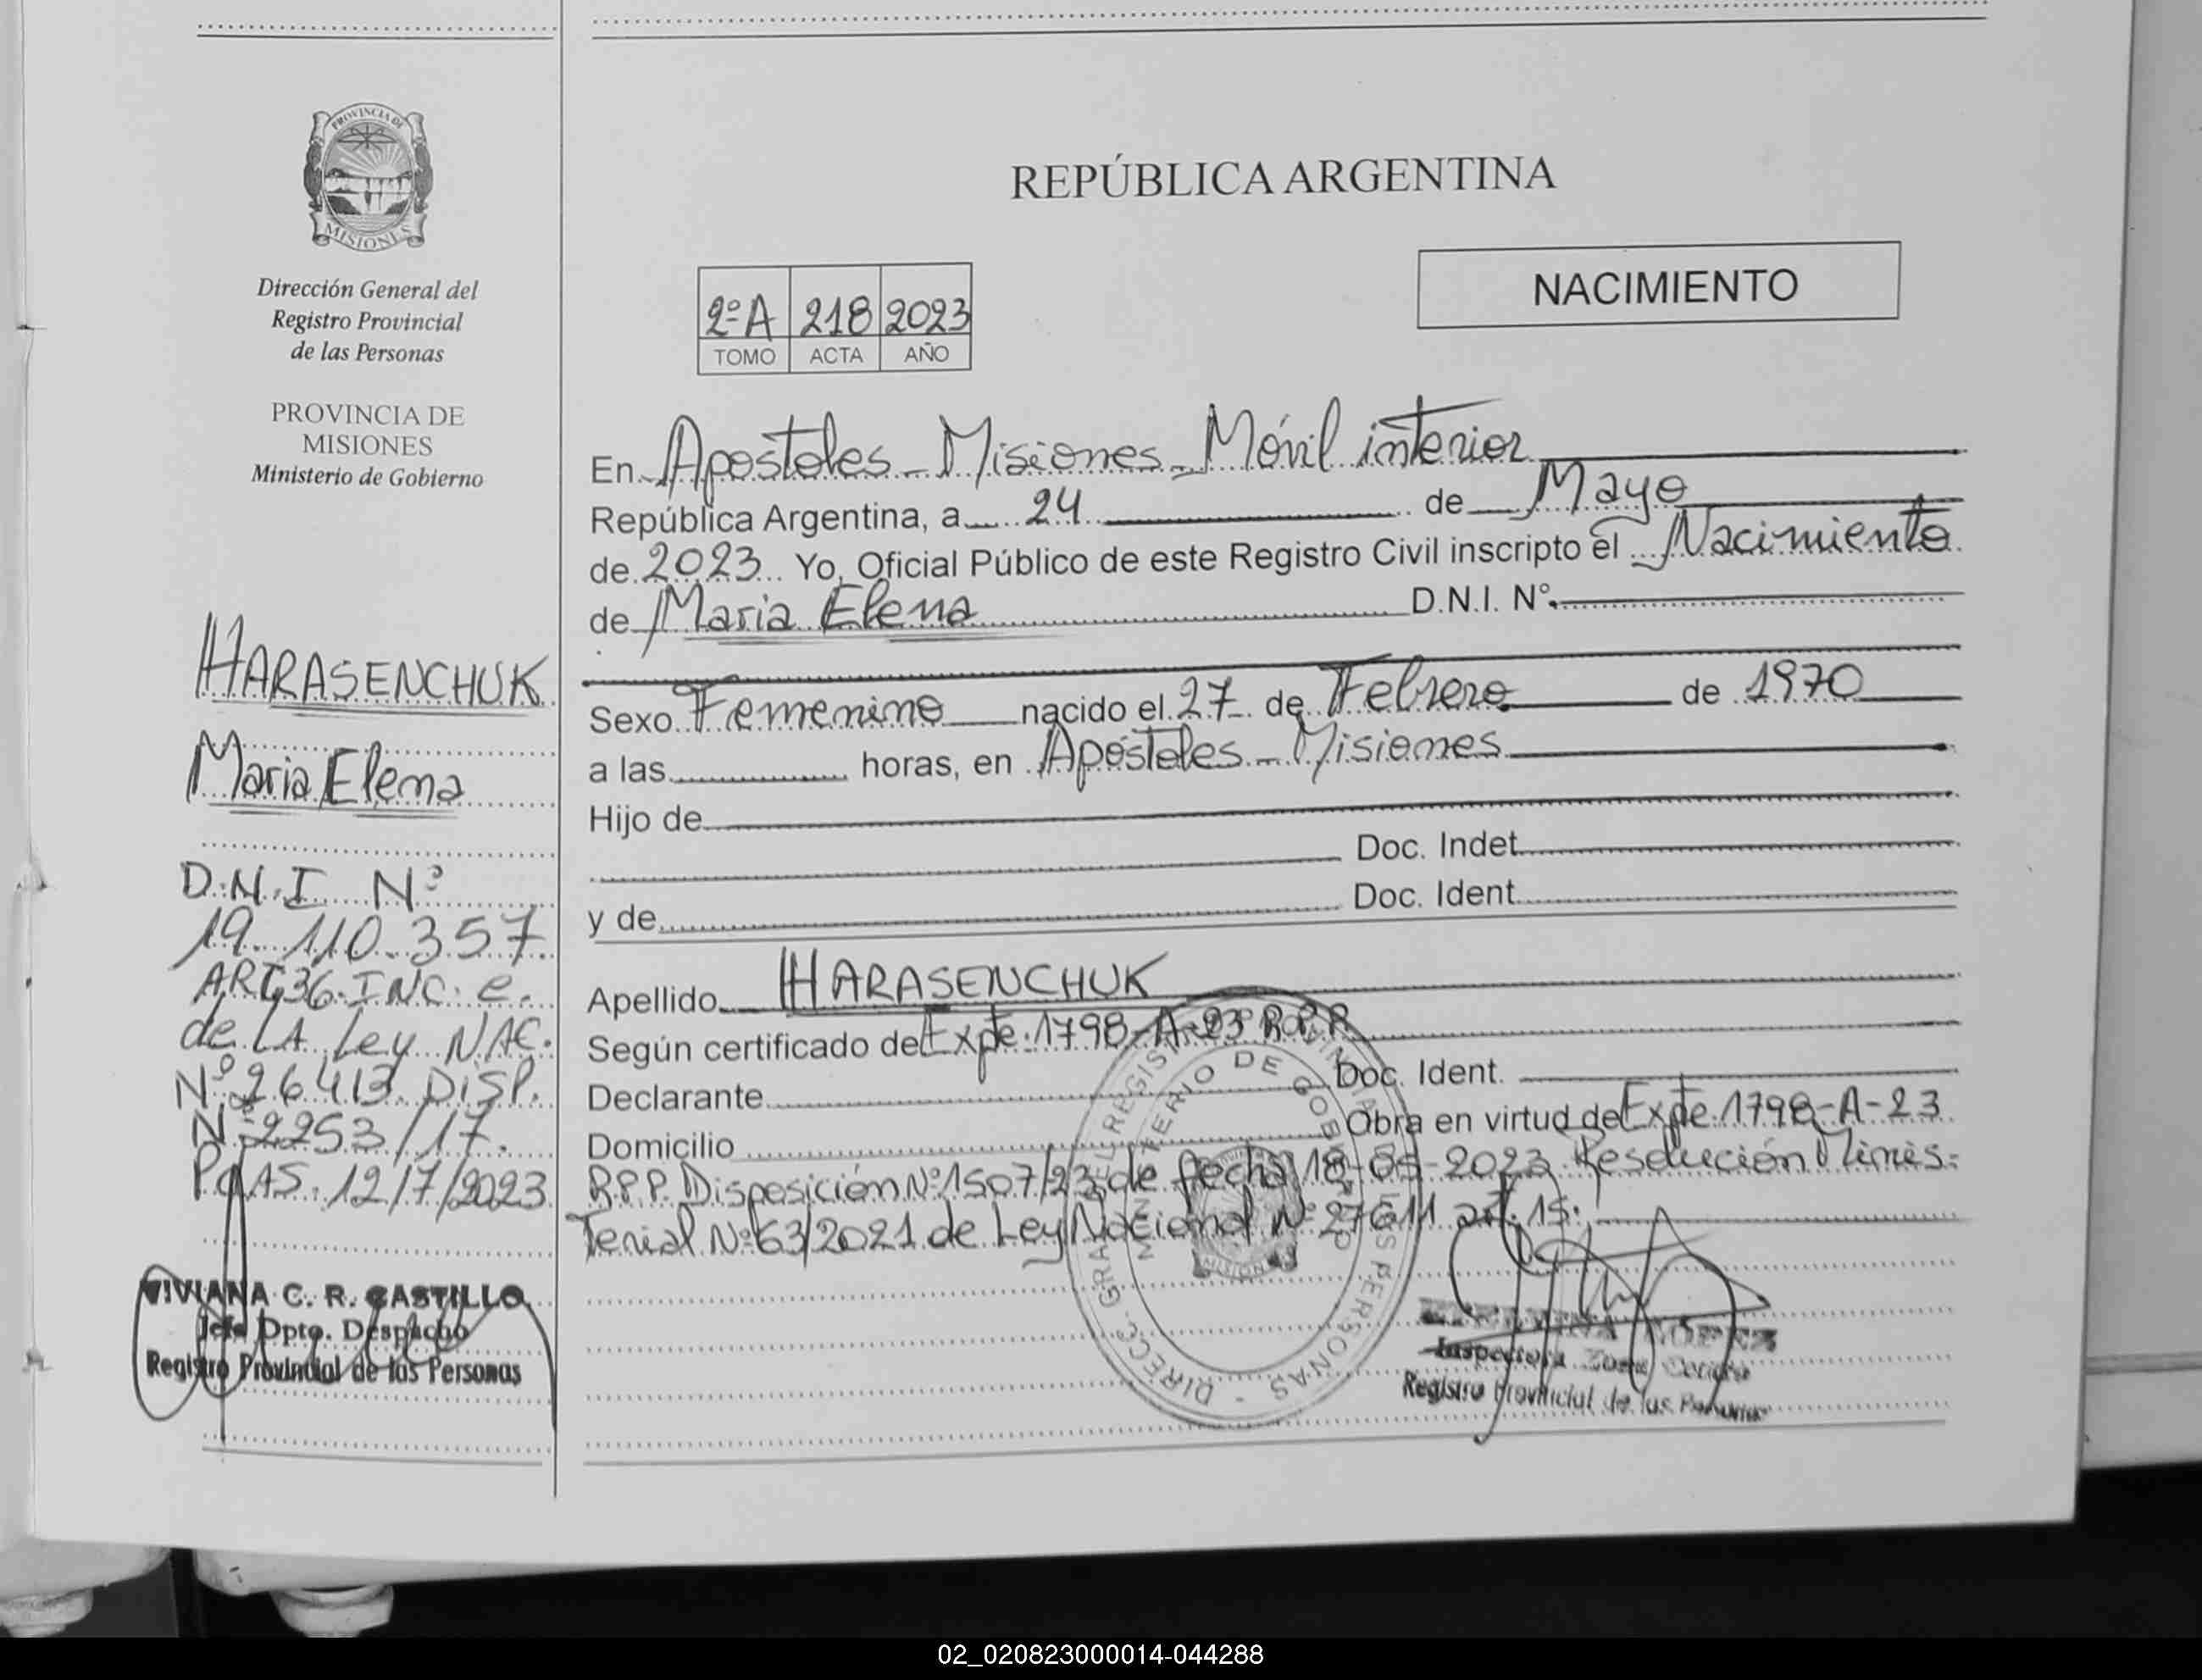 PROVINCIA DE
MISIONES
Dirección General del
Registro Provincial
de las Personas
PROVINCIA DE
MISIONES
Ministerio de Gobierno
HARASENCHUK
Maria Elena
D.N.I. Nº
19.110.357
ART 36. INC. e.
de LA Ley NAC.
Nº 26413. DISP.
Nº 2253/17.
PGAS. 12/7/2023
VIVIANA C. R. CASTILLO
Jefe Dpto. Despacho
Registro Provincial de las Personas
REPÚBLICA ARGENTINA
NACIMIENTO
2º A 218 2023
TOMO ACTA AÑO
En Apostoles - Misiones - Móvil interior
República Argentina, a 24 de Mayo
de 2023 Yo, Oficial Público de este Registro Civil inscripto el Nacimiento
de Maria Elena D.N.I. Nº
Sexo Femenino nacido el 27 de Febrero de 1970
a las horas, en Apóstoles - Misiones
Hijo de
Doc. Indet
y de Doc. Ident
Apellido HARASENCHUK
Según certificado de Expte. 1798-A-23 R.P.P.
Declarante Doc. Ident.
Domicilio Obra en virtud de Expte. 1798-A-23
R.P.P. Disposición Nº 1507/23 de fecha 18-05-2023 Resolución Minis-
terial Nº 63/2021 de Ley Nacional Nº 27611 art. 15.
MINISTERIO DE GOBIERNO
MISIONES
Inspectora Zona
Registro Provincial de las Personas
02_020823000014-044288